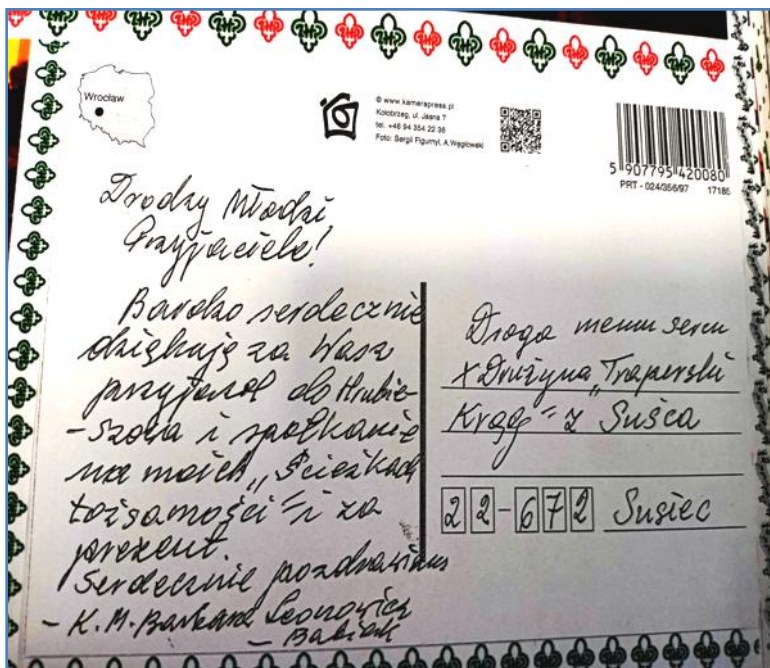 Wrocław
© www.kamerapress.pl
Kołobrzeg, ul. Jasna 7
tel. +48 94 354 22 36
Foto: Sergii Figurnyi, A.Węglowski
5 907795 420080
PRT - 024/356/97 17185
Drodzy Młodzi
Przyjaciele!
Bardzo serdecznie
dziękuję za Wasz
przyjazd do Hrubie-
-szowa i spotkanie
na moich „Ścieżkach
tożsamości" i za
prezent.
Serdecznie pozdrawiam
- K. M. Barbara Leonowicz
- Babiak
Droga memu sercu
X Drużyna „Traperski
Krąg" z Suśca
22-672 Susiec